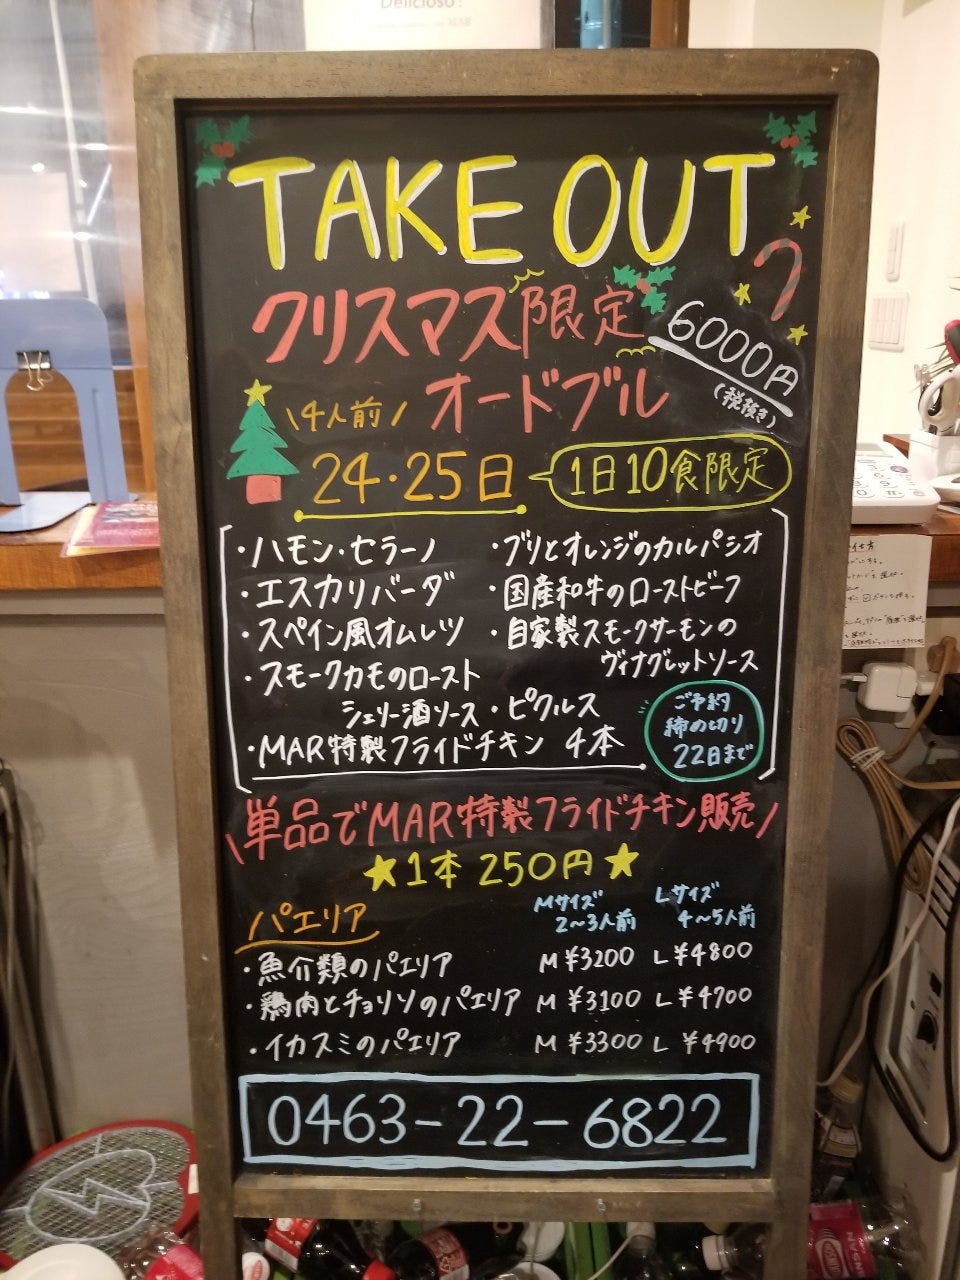 Delicioso!
TAKE OUT
クリスマス限定
オードブル
6000円
(税抜き)
\4人前/
24・25日
1日10食限定
・ハモン・セラーノ
・エスカリバーダ
・スペイン風オムレツ
・スモークカモのロースト
シェリー酒ソース
・MAR特製フライドチキン 4本
・ブリとオレンジのカルパシオ
・国産和牛のローストビーフ
・自家製スモークサーモンの
ヴィナグレットソース
・ピクルス
ご予約
締め切り
22日まで
\単品でMAR特製フライドチキン販売/
★1本 250円★
パエリア
Mサイズ
2〜3人前
Lサイズ
4〜5人前
・魚介類のパエリア M ¥3200 L ¥4800
・鶏肉とチョリソのパエリア M ¥3100 L ¥4700
・イカスミのパエリア M ¥3300 L ¥4900
0463-22-6822